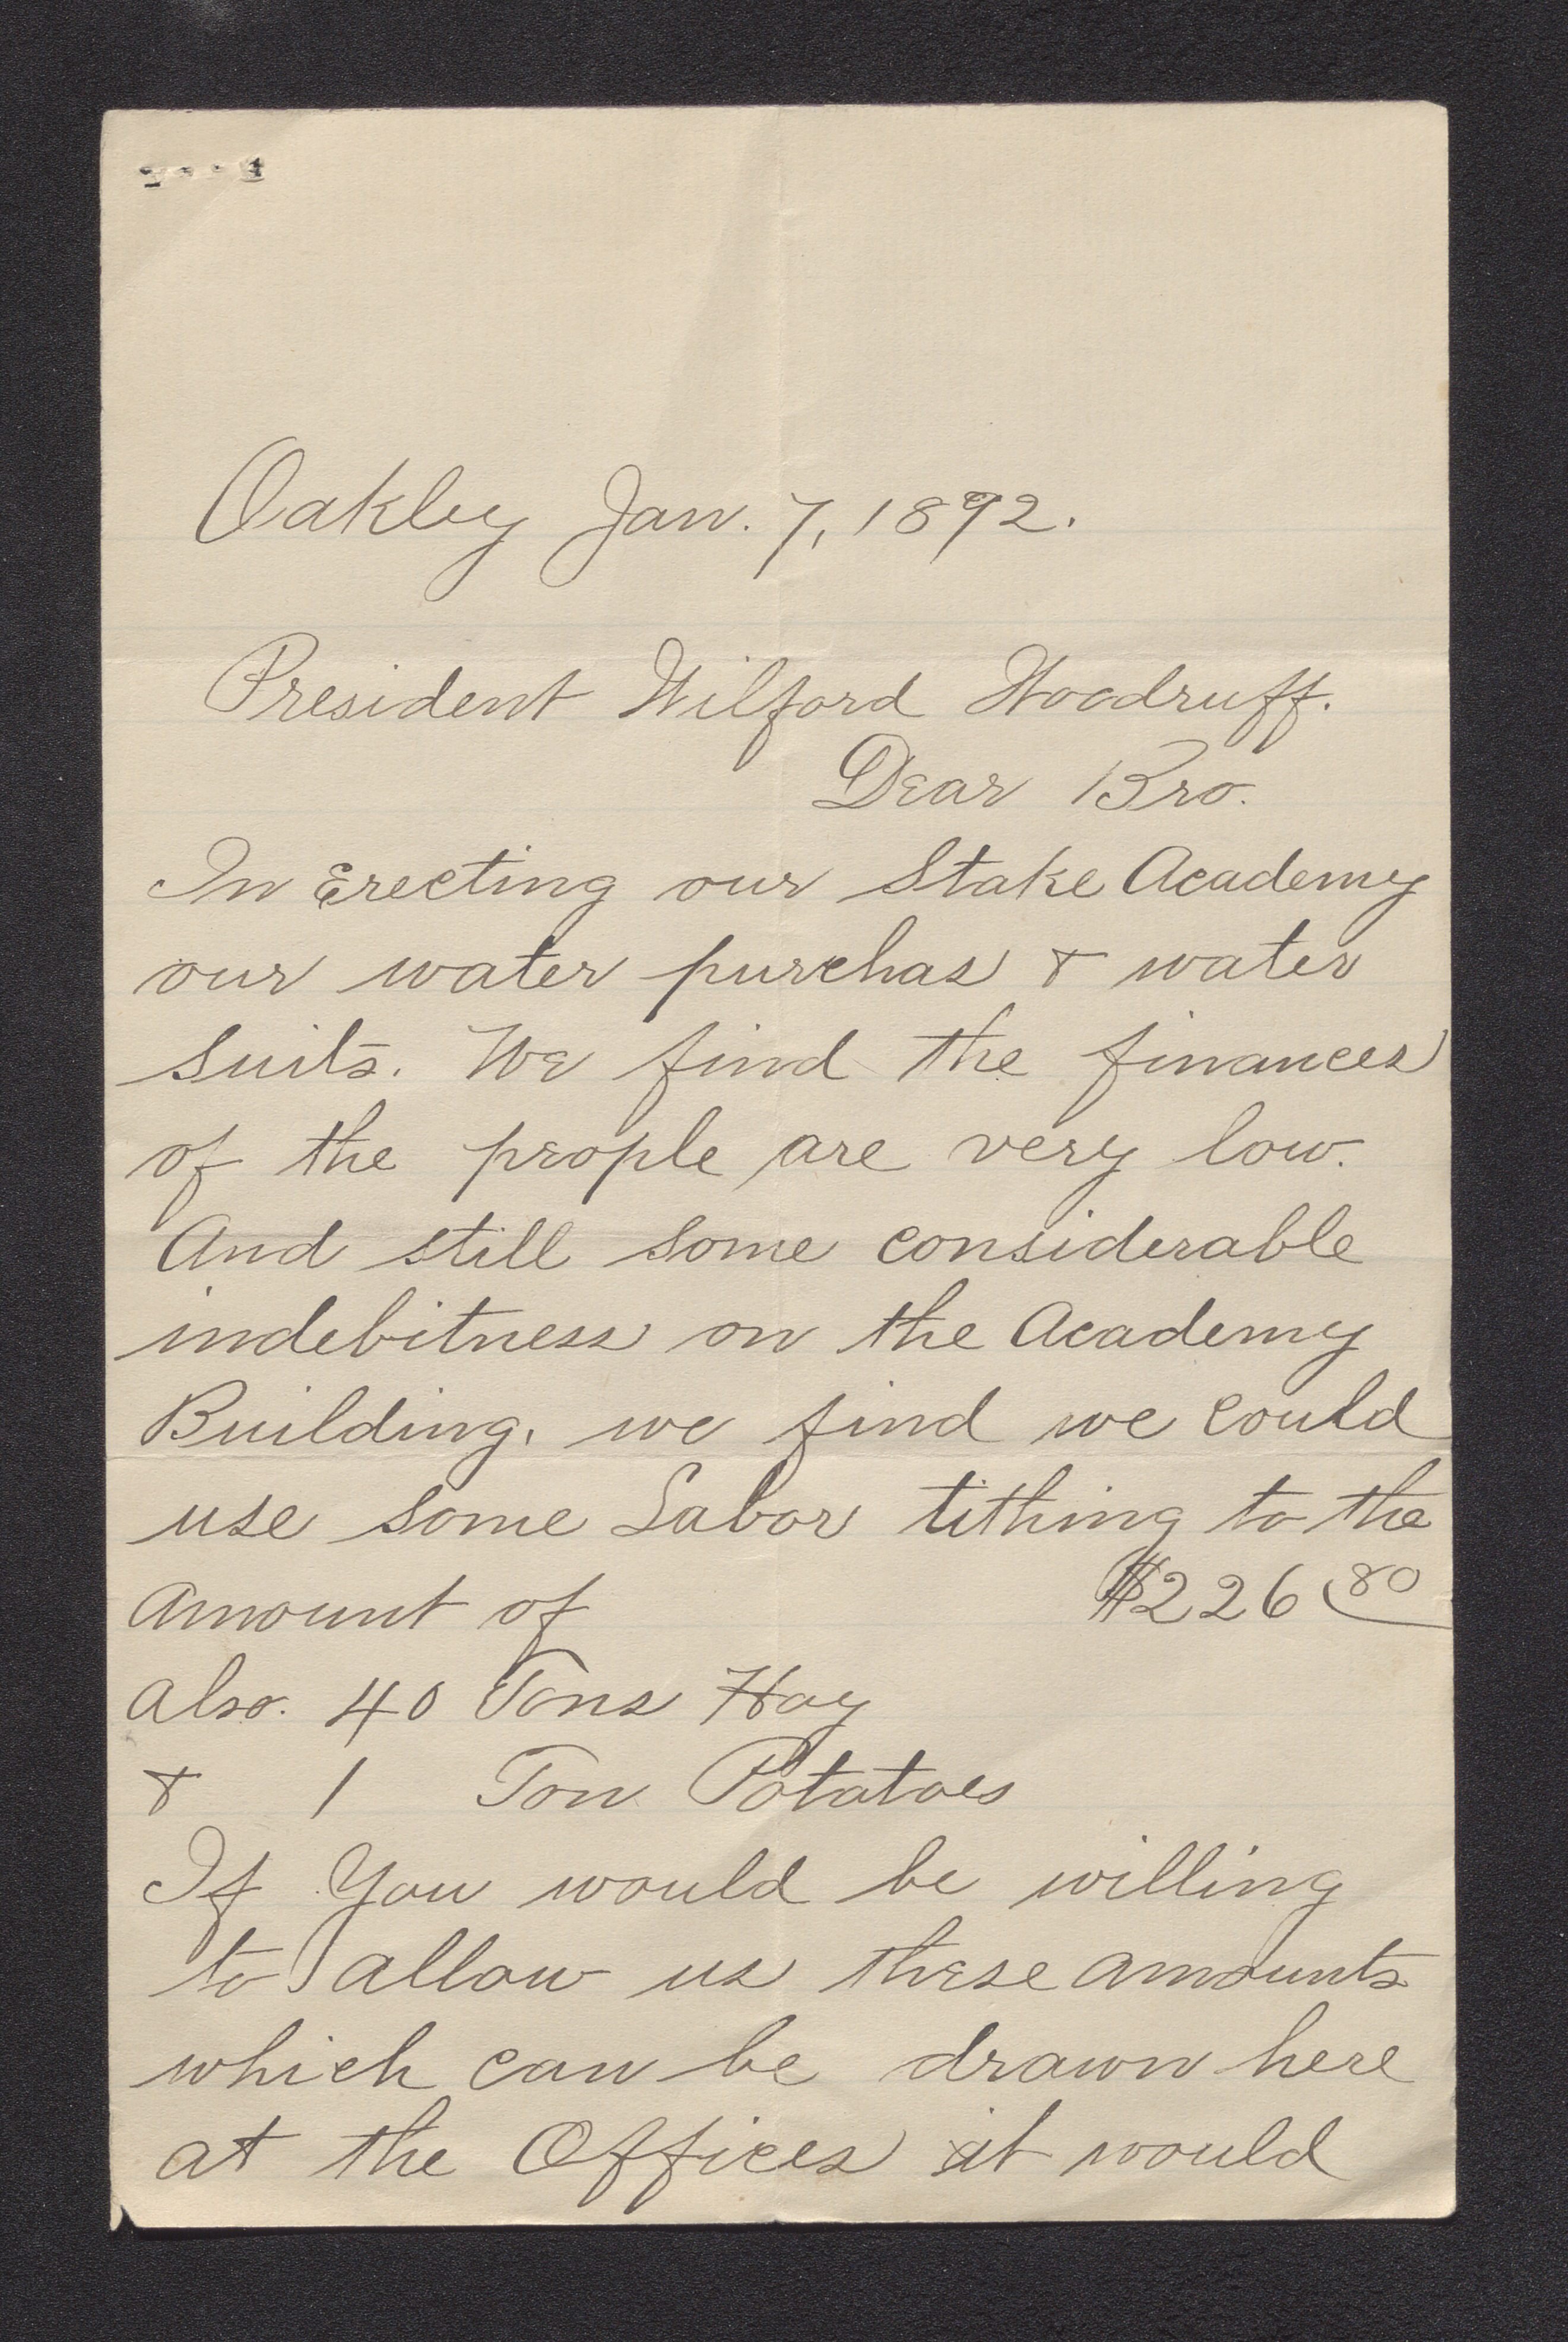 Oakley Jan. 7, 1892.
President Wilford Woodruff.
Dear Bro.
In Erecting our Stake Academy
our water purchas & water
suits. We find the finances
of the people are very low.
And still some considerable
indebitness on the Academy
Building, we find we could
use some Labor tithing to the
amount of $226 80
also. 40 Tons Hay
& 1 Ton Potatoes
If You would be willing
to allow us these amounts
which can be drawn here
at the Offices it would